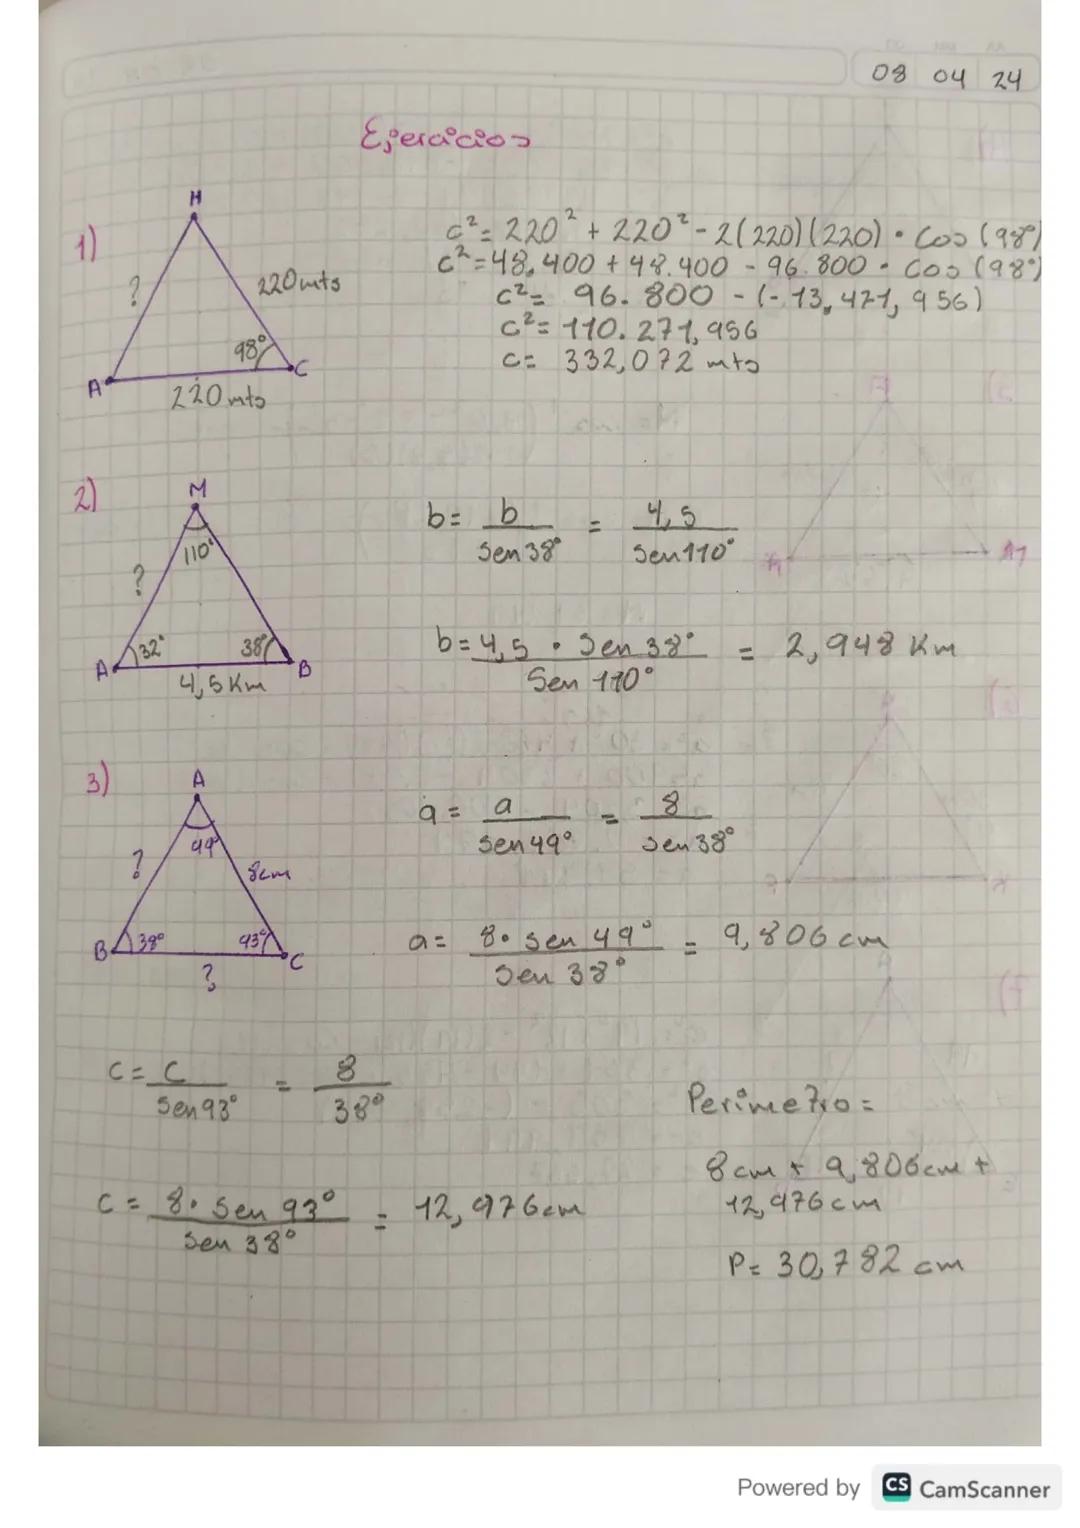 08 04 24
Ejercicios
1)
H
?
220 mts
98°
A
C
220 mts
c² = 220² + 220² - 2(220)(220) · Cos (98°)
c² = 48.400 + 48.400 - 96.800 · Cos (98°)
c² = 96.800 - (-13,471,956)
c² = 110.271,956
c = 332,072 mts
2)
M
110°
?
32°
38°
A
B
4,5 Km
b = b/Sen 38° = 4,5/Sen 110°
b = 4,5 · Sen 38°/Sen 110° = 2,948 Km
3)
A
49°
?
8cm
B
38°
93°
C
?
a = a/Sen 49° = 8/Sen 38°
a = 8 · Sen 49°/Sen 38° = 9,806 cm
c = c/Sen 93° = 8/38°
c = 8 · Sen 93°/Sen 38° = 12,976cm
Perimetro =
8cm + 9,806cm +
12,976cm
P = 30,782 cm
Powered by CS CamScanner